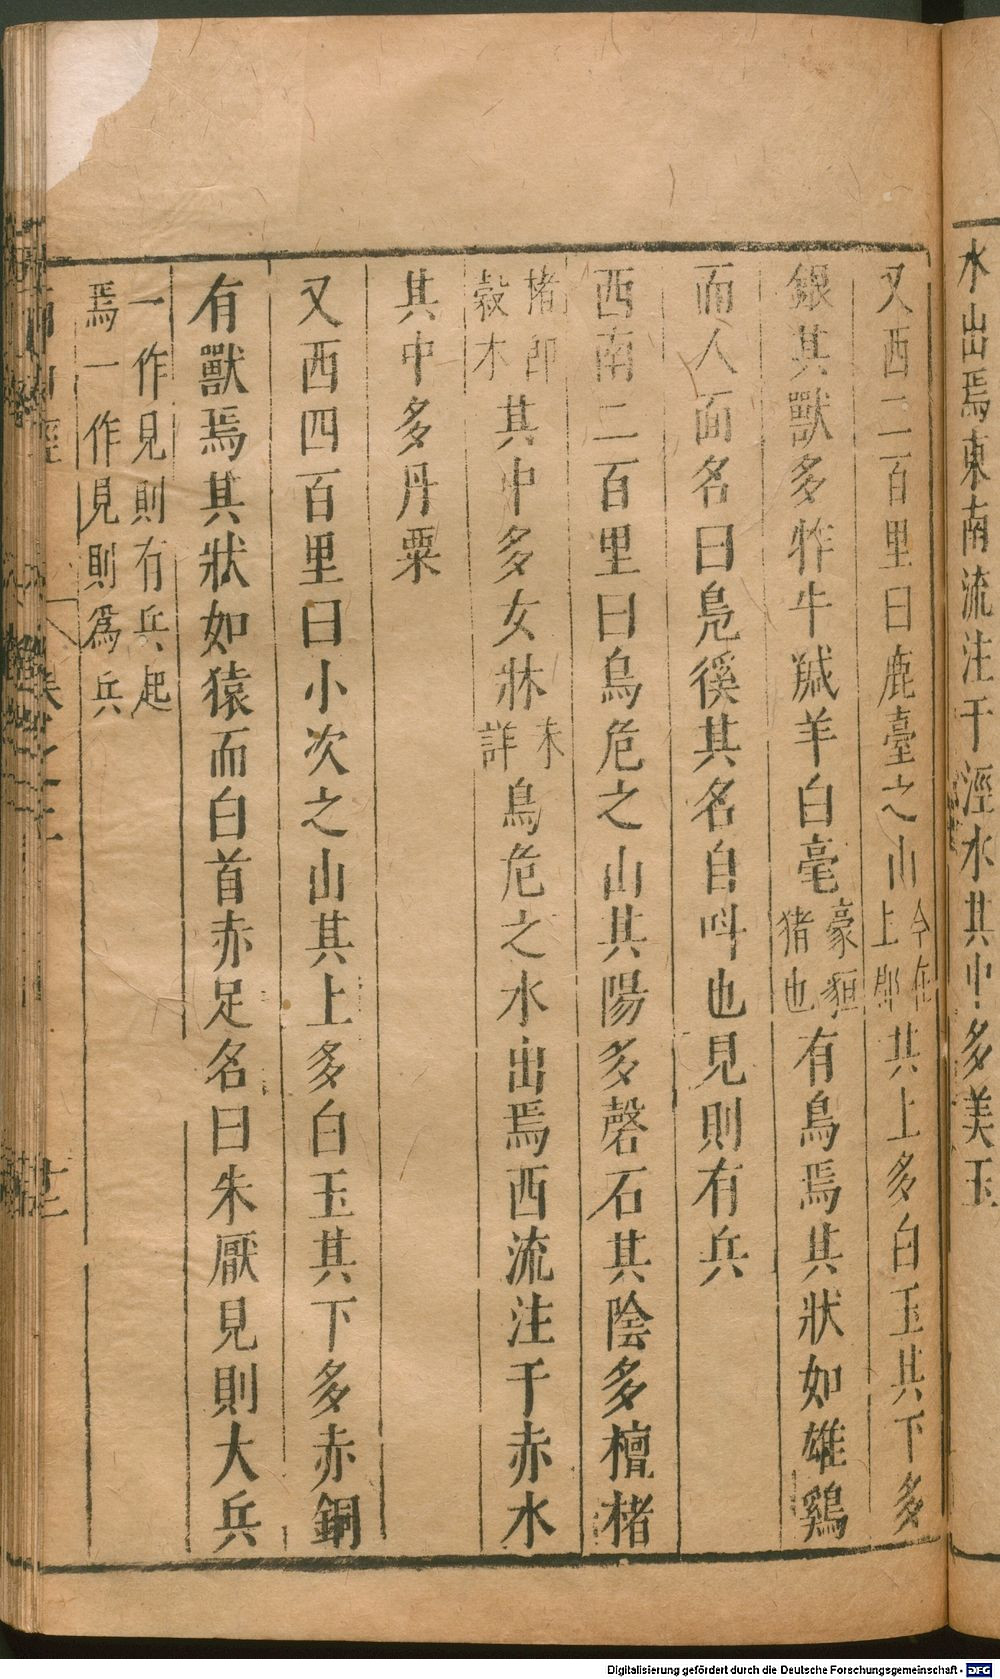 水出焉東南流注于涇水其中多美玉
又西二百里曰鹿臺之山今在上郡其上多白玉其下多
銀其獸多㸲牛羬羊白毫豪貆猪也有鳥焉其狀如雄鷄
而人面名曰鳧徯其名自呌也見則有兵
西南二百里曰鳥危之山其陽多磬石其陰多檀楮
楮即榖木其中多女牀未詳鳥危之水出焉西流注于赤水
其中多丹粟
又西四百里曰小次之山其上多白玉其下多赤銅
有獸焉其狀如猿而白首赤足名曰朱厭見則大兵
一作見則有兵起
焉一作見則爲兵
Digitalisierung gefördert durch die Deutsche Forschungsgemeinschaft - DFG